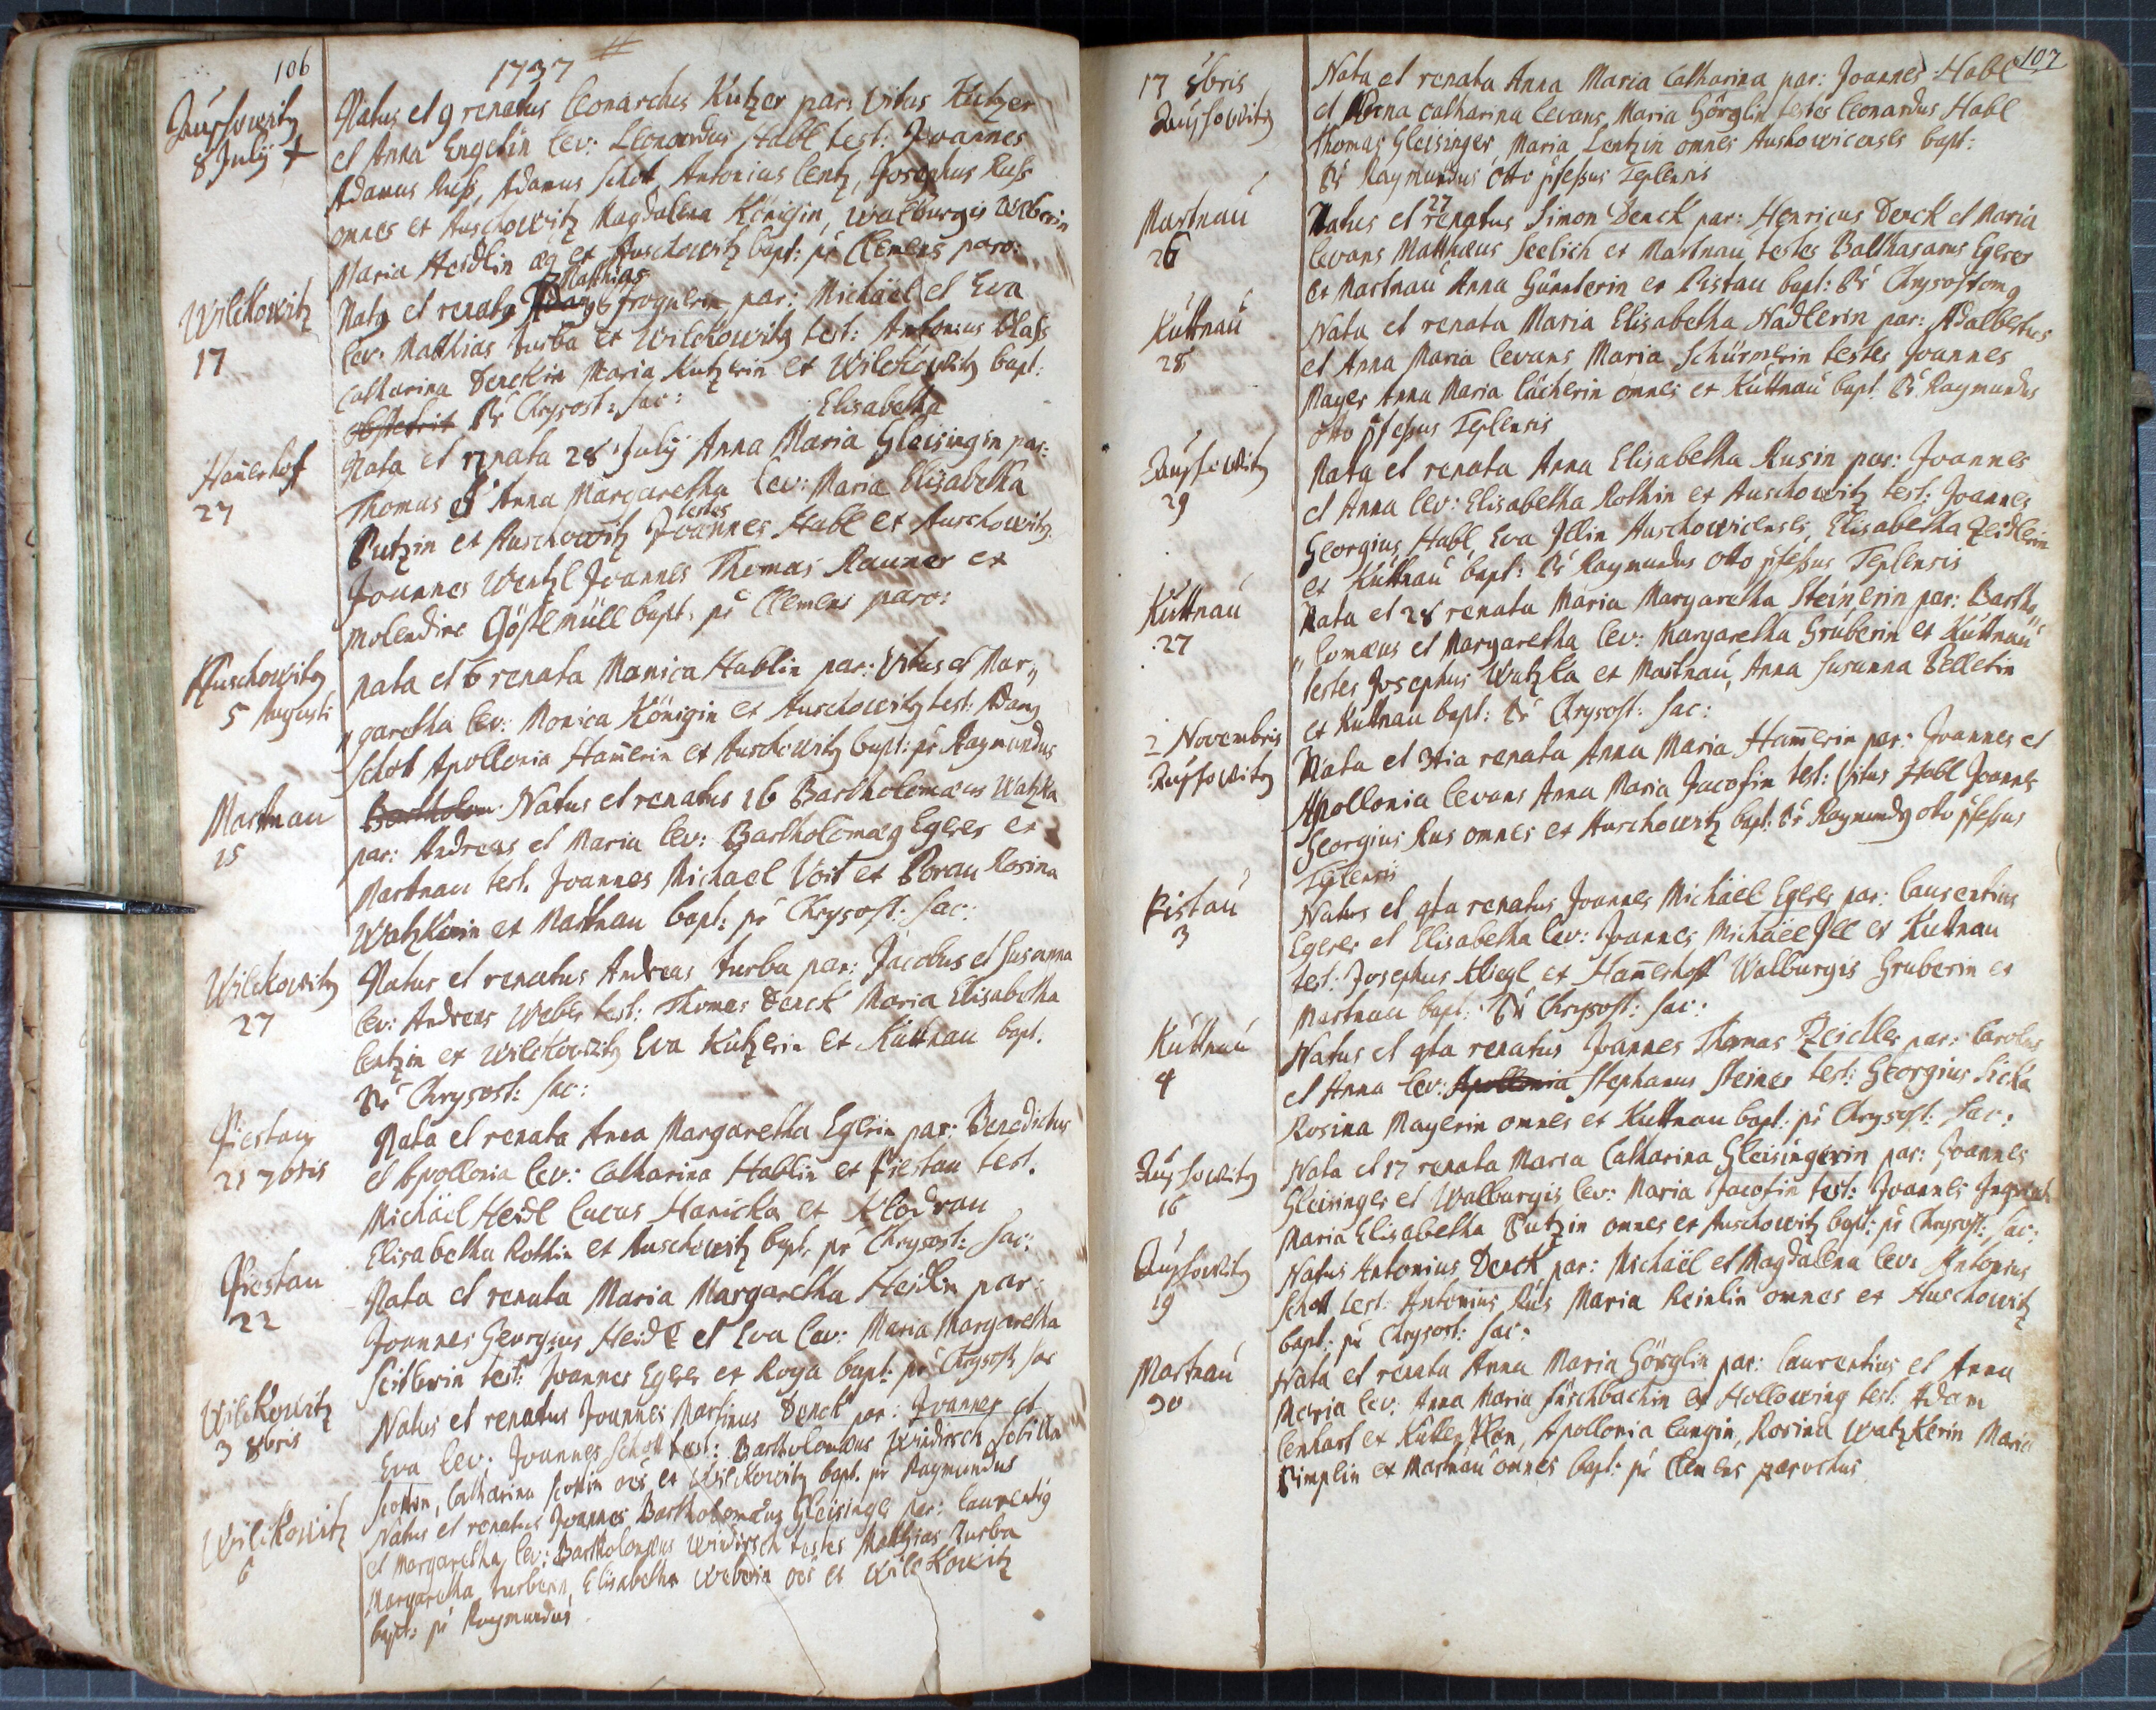 106
1737
Auschowitz
8 Julij +
Natus et 9 renatus Leonardus Kutzer par: Vitus Kutzer
et Anna Engelin lev: Leonardus Habl test: Joannes
Adamus Russ, Adamus Schot Antonius Lentz, Josephus Russ
omnes ex Auschowitz Magdalena Königin, Walburgis Weberin
Maria Heidlin ex Auschowitz bapt: pr Clemens paro:
Wilckowitz
17
Mathias
Natg et renatg par: Michäel et Eva
lev: Mathias Turba ex Wilckowitz test: Antonius
Catharina Denckin Maria Kutzerin ex Wilckowitz bapt:
obstetrit Pr Chrysost: sac:
Elisabetha
Ham̄erhof
27
Nata et renata 28 July Anna Maria Gleisingin par:
Thomas et Anna Margaretha lev: Maria Elisabetha
testes
Putzin ex Auschowitz Joannes Habl ex Auschowitz
Joannes Wentzl Joannes Thomas Rauner ex
molendino Göstlmüll bapt: pr Clemens paro:
Auschowitz
5 Augusti
nata et 6 renata Monica Hablin par: Vitus et Mar„
„garetha lev: Monica Königin ex Auschowitz test: Adamg
Schot Apollonia Ham̄erin ex Auschowitz bapt: pr Raymundus
Martnau
15
Bartholom Natus et renatus 16 Bartholomæus Watzka
par: Andreas et Maria lev: Bartholomæg Egerer ex
Martnau test. Joannes Michäel Voit ex Porau Rosina
Watzkerin ex Martnau bapt: pr Chrysost: sac:
Wilckowitz
27
Natus et renatus Andreas Turba par: Jacobus et Susanna
lev: Andreas Weber test: Thomas Denck Maria Elisabetha
Lentzin ex Wilckowitz Eva Kutzerin ex Kuttnau bapt.
Pr Chrysost: sac:
Piestau
21 7bris
Nata et renata Anna Margaretha Egerin par: Benedictus
et Apollonia lev: Catharina Hablin ex Piestau test.
Michäel Heidl Lucas Hanicka ex Klodrau
Elisabetha Rothin ex Auschowitz bapt. pr Chrysost: sac:
Piestau
22
Nata et renata Maria Margaretha Heidlin par:
Joannes Georgius Heidl et Eva lev: Maria Margaretha
Seitlerin test: Joannes Egerer ex Roya bapt: pr Chrysost. sac
Wilckowitz
3 8bris
Natus et renatus Joannes Martinus Denck par: Joannes et
Eva lev. Joannes Schott test: Bartholomæus Windirsch Sebilla
Scottin, Catharina Scottin oēs ex Wilckowitz bapt. pr Raymundus
Wilckowitz
6
Natus et renatus Joannes Bartholomæus Gleisinger par: Laurentig
et Margaretha, lev: Bartholomæus Windirsch testes Mathias Turba
Margaretha Turberin, Elisabetha Weberin oēs ex Wilckowitz
bapt: pr Raymundus
107
17 8bris
Auschowitz
Nata et renata Anna Maria Catharina par: Joannes Habl
et Anna Catharina levans Maria Görglin testes Leonardus Habl
Thomas Gleisinger Maria Lentzin omnes Auschowicenses bapt:
Pr Raymundus Otto pfeßus Teplensis
Martnau
26
27
Natus et renatus Simon Denck par: Henricus Denck et Maria
levans Mathæus Seelich ex Martnau testes Balthasarus Egerer
ex Martnau Anna Günterin ex Pistau bapt: Pr Chrysostomg
Kuttnau
28
Nata et renata Maria Elisabetha Nadlerin par: Adalbertus
et Anna Maria levans Maria Schürmerin testes Joannes
Mayer Anna Maria Lächerin omnes ex Kuttnau bapt. Pr Raymundus
Otto pfeßus Teplensis
Auschowitz
29
Nata et renata Anna Elisabetha Rusin par: Joannes
et Anna lev: Elisabetha Rothin ex Auschowitz test: Joannes
Georgius Habl, Eva Illin Auschowicenses, Elisabetha Zeidlerin
ex Kuttnau bapt: Pr Raymundus Otto pfeßus Teplensis
Kuttnau
27
Nata et 28 renata Maria Margaretha Steinerin par: Bartho„
„lomæus et Margaretha lev: Margaretha Gruberin ex Kuttnau
testes Josephus Watzka ex Martnau, Anna Susanna Pelletin
ex Kuttnau bapt: Pr Chrysost: sac:
2 Novembris
Auschowitz
Nata et 3tia renata Anna Maria Ham̄erin par: Joannes et
Apollonia levans Anna Maria Jacofin test: Vitus Habl Joannes
Georgius Rus omnes ex Auschowitz bapt: Pr Raymundg Otto pfeßus
Teplensis
Pistau
3
Natus et 4ta renatus Joannes Michäel Egerer par: Laurentius
Egerer et Elisabetha lev: Joannes Michäel Ill ex Kuttnau
test: Josephus Kliegl ex Ham̄erhoff Walburgis Gruberin ex
Martnau bapt: Pr Chrysost: sac:
Kuttnau
4
Natus et 4ta renatus Joannes Thomas Zeidler par: Carolus
et Anna lev: Apollonia Stephanus Steiner test: Georgius Sicka
Rosina Mayerin omnes ex Kuttnau bapt: pr Chrysost: sac:
Auschowitz
16
Nata et 17 renata Maria Catharina Gleisingerin par: Joannes
Gleisinger et Walburgis lev: Maria Jacofin test: Joannes
Maria Elisabetha Putzin omnes ex Auschowitz bapt: pr Chrysost: sac:
Auschowitz
19
Natus Antonius Denck par: Michäel et Magdalena lev: Antonius
Schott test: Antonius Rus Maria Reinlin omnes ex Auschowitz
bapt: pr Chrysost: sac:
Martnau
30
Nata et renata Anna Maria Görglin par: Laurentius et Anna
Maria lev: Anna Maria Fischbachin ex Hollowing test: Adam
Lenhart ex Kutten Plan, Apollonia Langin, Rosina Watzkerin Maria
Pimplin ex Martnau omnes bapt: pr Clemens parochus